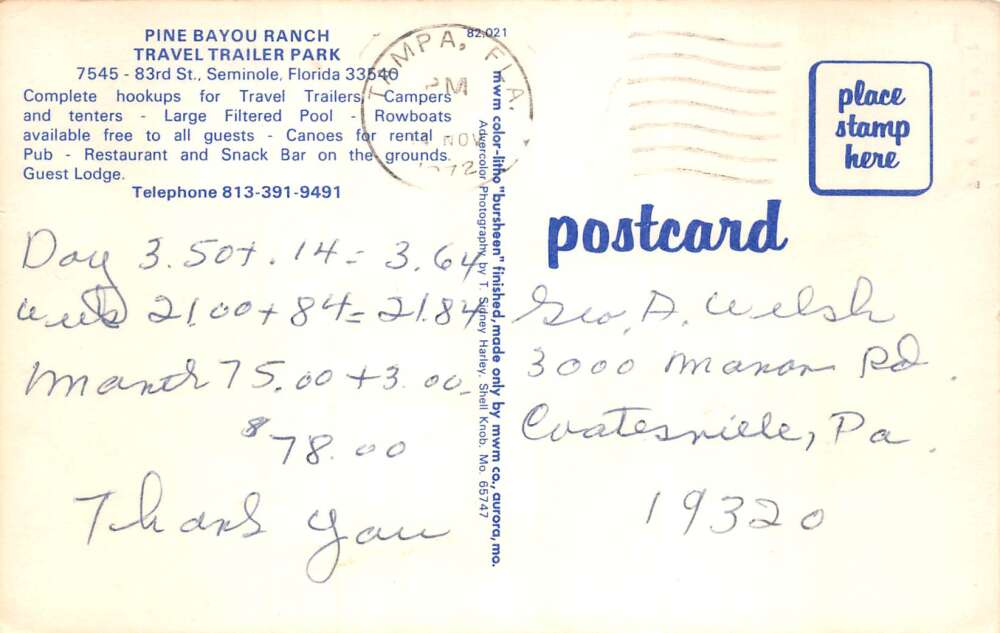 PINE BAYOU RANCH
TRAVEL TRAILER PARK
7545 - 83rd St., Seminole, Florida 33540
Complete hookups for Travel Trailers, Campers
and tenters - Large Filtered Pool - Rowboats
available free to all guests - Canoes for rental -
Pub - Restaurant and Snack Bar on the grounds.
Guest Lodge.
Telephone 813-391-9491
82,021
TAMPA, FLA.
PM
NOV
1972
mwm color-litho "bursheen" finished, made only by mwm co., aurora, mo.
Advercolor Photography by T. Sidney Harley, Shell Knob, Mo. 65747
place
stamp
here
postcard
Day 3.50 + .14 = 3.64
week 21.00 + 84 = 21.84
Month 75.00 + 3.00
$78.00
Thank You
Geo. A. Welsh
3000 Manor Rd.
Coatesville, Pa.
19320